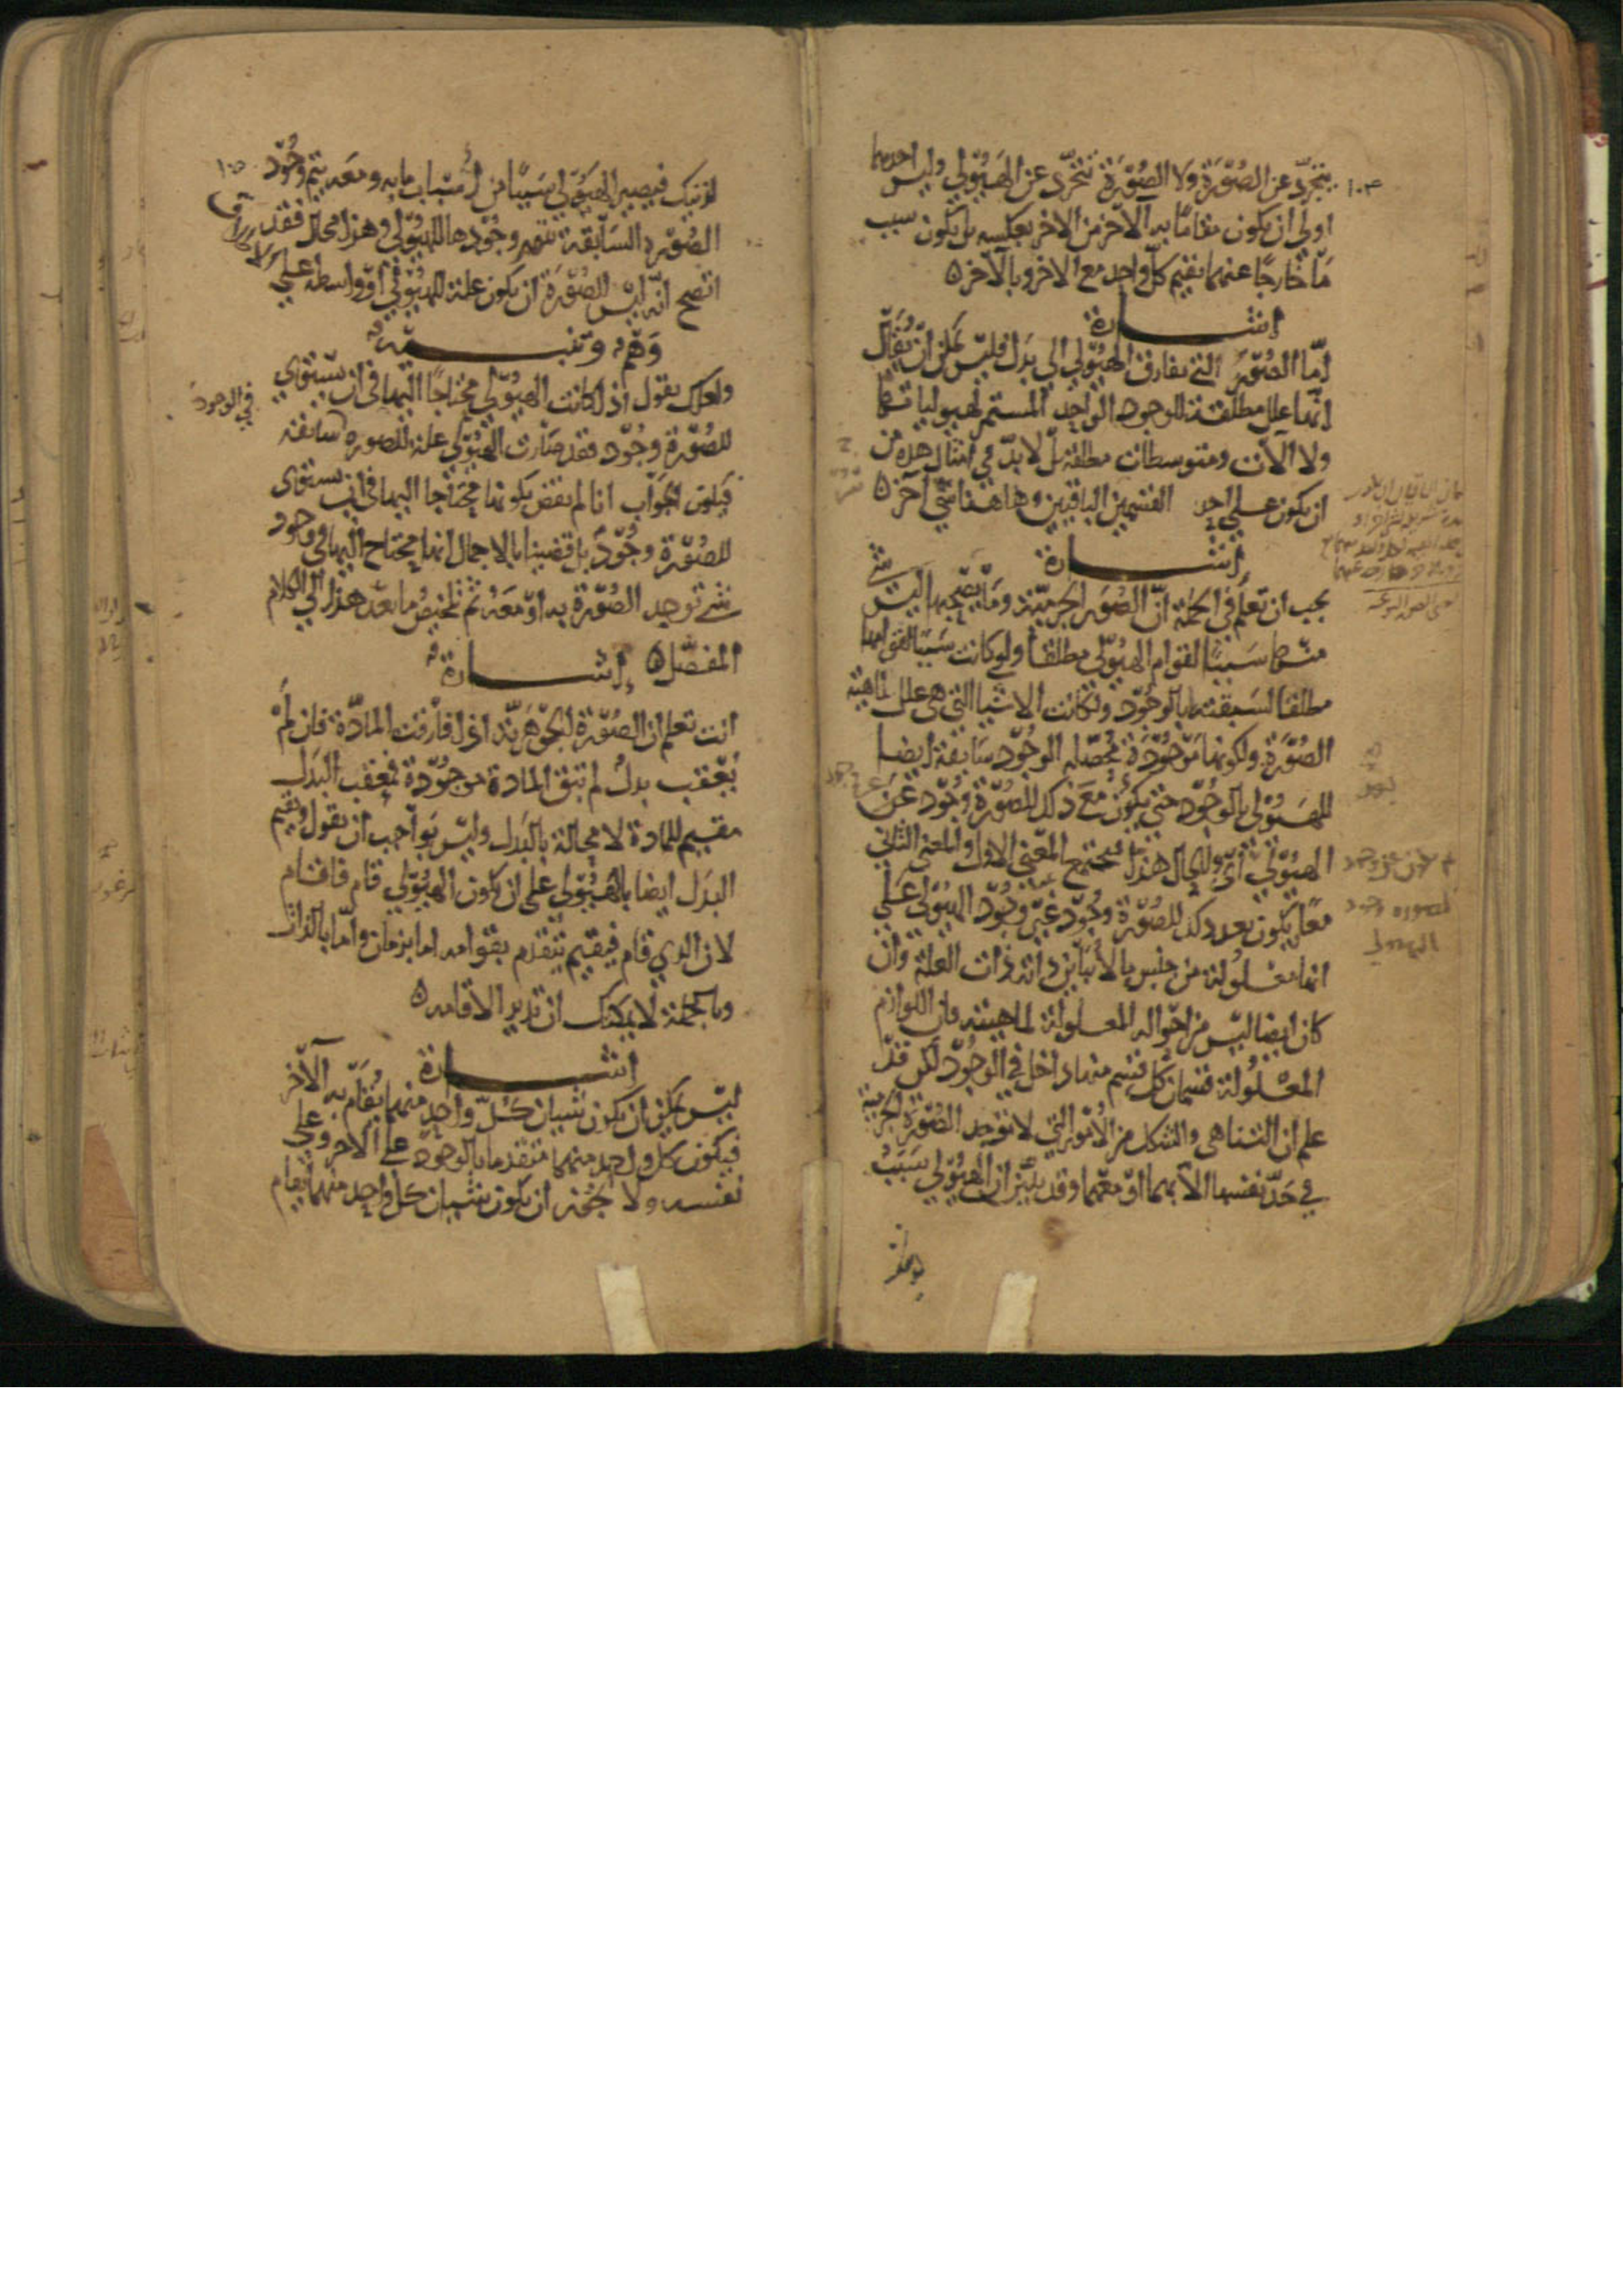 ١٠٤
يتجرد عن الصورة ولا الصورة تتجرد عن الهيولى وليس احدهما
اولى ان يكون مقاما به الاخر من الاخر بعكسه بل يكون سبب
ما خارجا عنهما يقيم كل واحد مع الاخر وبالاخر ه
اشارة
امّا الصورُ التي تفارق الهيولى الى بدل فليس يمكن ان يُقال
انها علل مطلقة للوجود الواحد المستمر لهيولياتها
ولا الآت ومتوسطات مطلقة بل لا بدّ في امثال هذه من
ان يكون على احد القسمين الباقيين وهاهنا شي آخر ه
اشارة
يجب ان تعلم في الجملة انّ الصُور الجرمية وما يصحبها ليس شي
منها سببا لقوام الهيولى مطلقا ولو كانت سببا لقوامها
مطلقا لسبقتها بالوجود ولكانت الاشيا التي هي علل لماهية
الصورة ولكونها موجودة محصله الوجود سابقة ايضا
للهيولى بالوجود حتى يكون مع ذلك للصورة وجود عن
الهيولى
معا يكون بعد ذلك للصورة وجود غير وجود الهيولى على
انها معلولة من جنس ما لا يباين ذاته ذات العلة وان
كان ايضا ليس من احواله المعلولة لماهيته فان اللوازم
المعلولة قسمان كل قسم منها داخل في الوجود لكن قد
علم ان التناهي والشكل من الامور التي لا توجد الصورة الجرمية
في حدّ نفسها الا بهما او معهما وقد تبيّن ان الهيولى سببُ
١٠٥
لذينك فيصير الهيولى سببا من اسباب ما به ومعه يتم وجود
الصورة السابقة بتتميم وجودها للهيولى وهذا محال فقد
اتضح انه ليس للصورة ان يكون علة للهيولى او واسطة على الاطلاق
وَهْمٌ وتنبيه
ولعلك تقول اذ كانت الهيولى محتاجا اليها في ان يستوي
للصورة وجود فقد صارت الهيولى علة للصورة في الوجود سابقة
فيكون الجواب انا لم نقض بكونها محتاجا اليها في ان يستوي
للصورة وجودٌ بل قضينا بالاجمال انها يحتاج اليها في وجود
شي توجد الصورة به او معه ثم تلخيص ما بعد هذا الى الكلام
المفصّل ه اشارة
انت تعلم ان الصورة الجوهرية اذا فارقت المادّة فان لم
يعقب بدلٌ لم تبق المادة موجودة فمعقب البدل
مقيم للمادة لا محالة بالبدل وليس بواجب ان تقول ويقيم
البدل ايضا بالهيولى على ان يكون الهيولى قام فاقام
لان الذي قام فيقيم يتقدم بقوامه اما بزمان واما بالذات
وبالجملة لا يمكنك ان تدير الاقامه ه
اشارة
ليس يمكن ان يكون شيان كل واحد منهما يُقام به الاخر
فيكون كل واحد منهما متقدما بالوجود على الاخر وعلى
نفسه ولا يجوز ان يكون شيان كل واحد منهما يقام